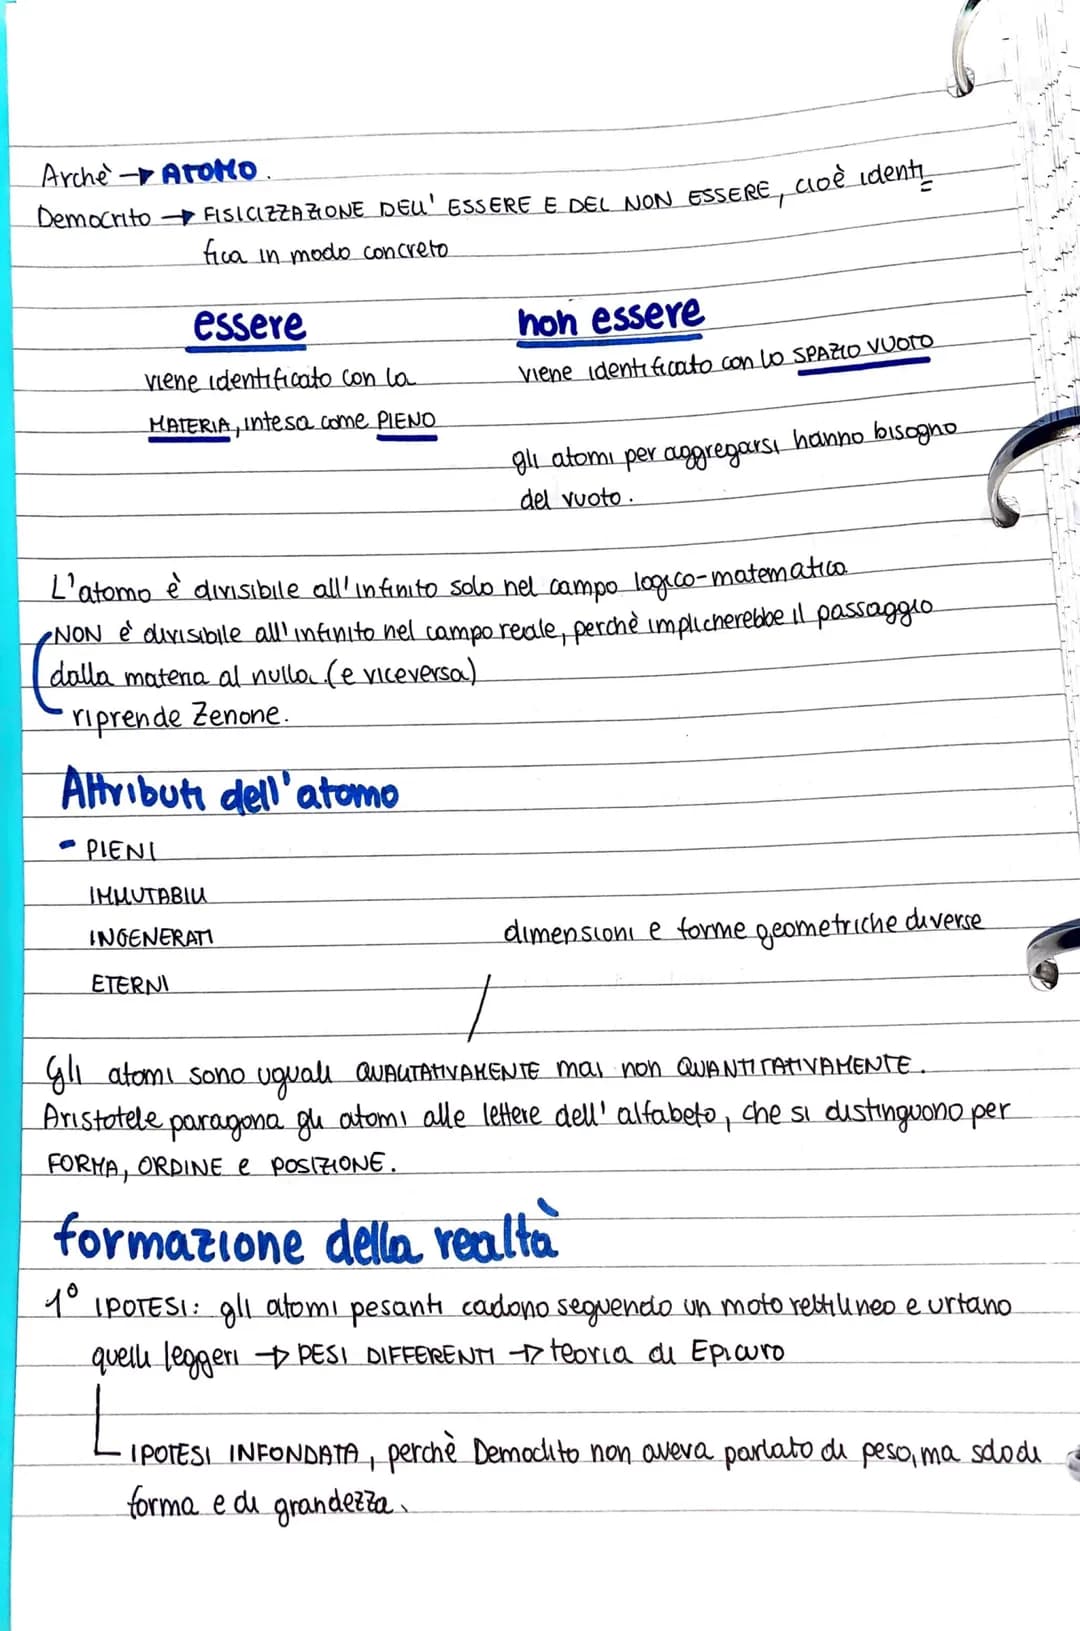 Archè → ATOMO.
Democrito → FISICIZZAZIONE DELL' ESSERE E DEL NON ESSERE, cioè identi
fica in modo concreto
essere
viene identificato con la
MATERIA, intesa come PIENO
non essere
viene identificato con lo SPAZIO VUOTO
gli atomi per aggregarsi hanno bisogno
del vuoto.
L'atomo è divisibile all'infinito solo nel campo logico-matematico
NON è divisibile all'infinito nel campo reale, perchè implicherebbe il passaggio
dalla materia al nulla. (e viceversa)
riprende Zenone.
Attributi dell'atomo
- PIENI
IMMUTABILI
INGENERATI
ETERNI
dimensioni e forme geometriche diverse
/
Gli atomi sono uguali QUALITATIVAMENTE mai non QUANTITATIVAMENTE.
Aristotele paragona gli atomi alle lettere dell'alfabeto, che si distinguono per
FORMA, ORDINE e POSIZIONE.
formazione della realtà
1° IPOTESI: gli atomi pesanti cadono seguendo un moto rettilineo e urtano
quelli leggeri → PESI DIFFERENTI → teoria di Epicuro
IPOTESI INFONDATA, perchè Democlito non aveva parlato di peso, ma solo di
forma e di grandezza.